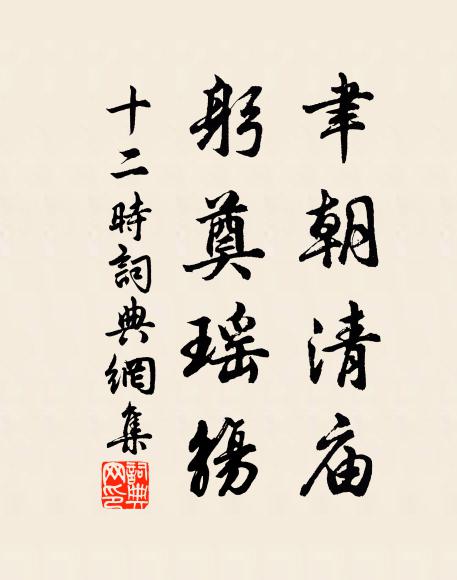 聿朝清庙
躬奠瑶觴
十二時詞典網集
詞典网印